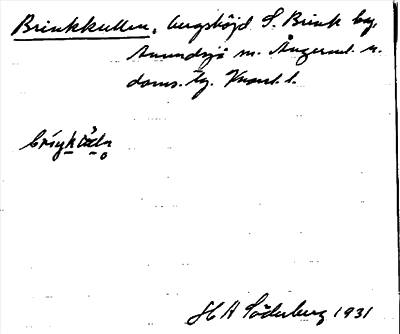 Brinkkullen, bergshöjd S. Brink by,
Anundsjö sn. Ångerml. n.
doms. Tg. Kronl. l.
H A Söderberg 1931